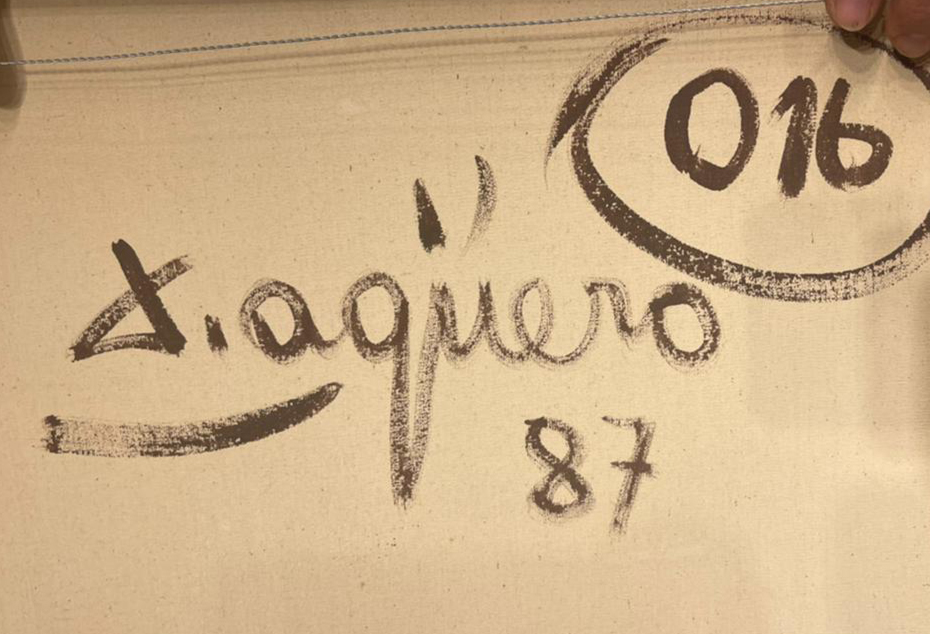 016
A. agüero
87